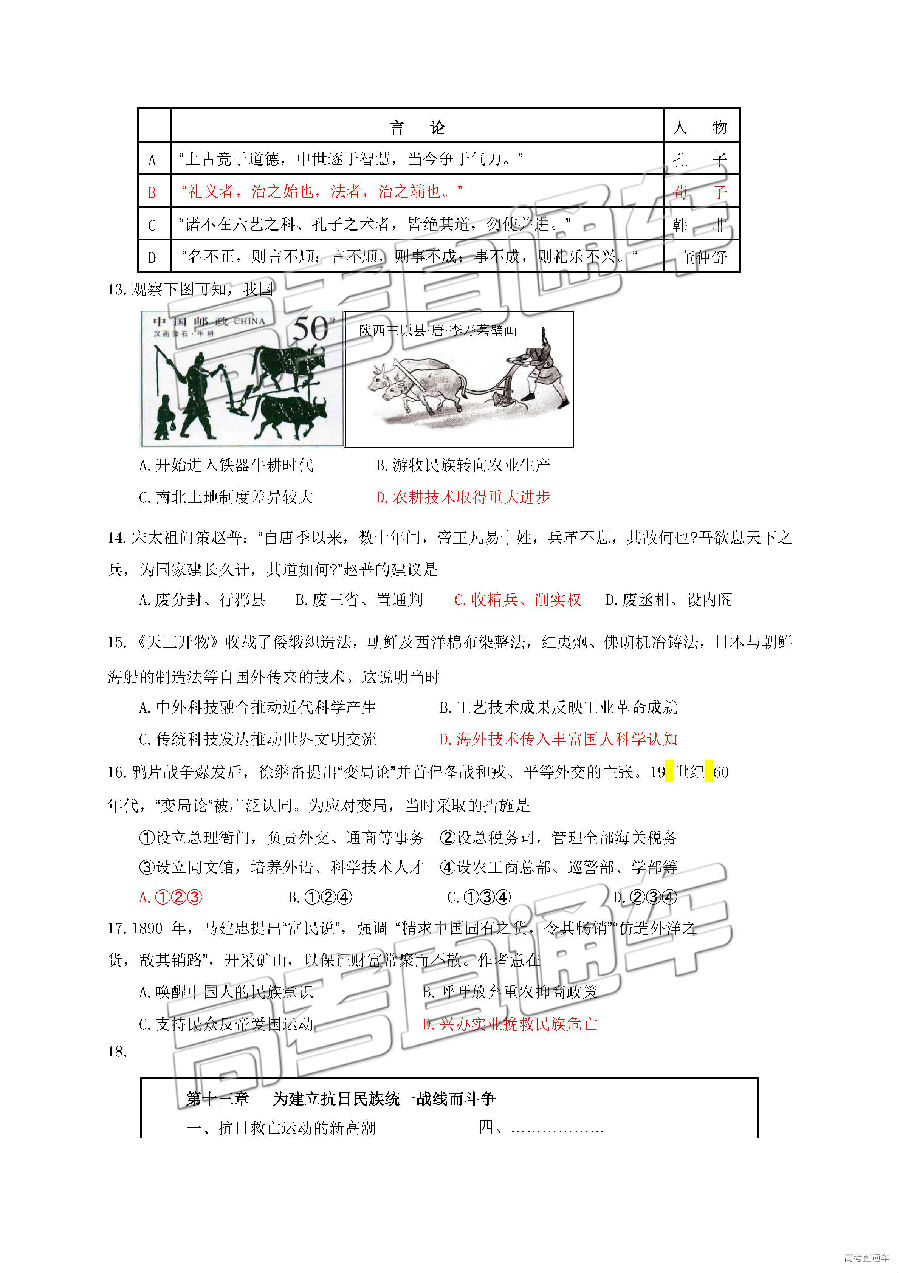 言 论 人 物
A “上古竞于道德，中世逐于智慧，当今争于气力。” 孔 子
B “礼义者，治之始也，法者，治之端也。” 荀 子
C “诸不在六艺之科、孔子之术者，皆绝其道，勿使并进。” 韩 非
D “名不正，则言不顺；言不顺，则事不成；事不成，则礼乐不兴。” 董仲舒
13.观察下图可知，我国
中国邮政 CHINA 50分
汉画像石·牛耕
陕西三原县·唐·李寿墓壁画
A.开始进入铁器牛耕时代 B.游牧民族转向农业生产
C.南北土地制度差异较大 D.农耕技术取得重大进步
14.宋太祖问策赵普：“自唐季以来，数十年间，帝王凡易十姓，兵革不息，其故何也?吾欲息天下之
兵，为国家建长久计，其道如何?”赵普的建议是
A.废分封、行郡县 B.废三省、置通判 C.收精兵、削实权 D.废丞相、设内阁
15.《天工开物》收载了倭缎织造法，朝鲜及西洋棉布染整法，红夷炮、佛朗机冶铸法，日本与朝鲜
海船的制造法等自国外传来的技术。这说明当时
A.中外科技融合推动近代科学产生 B.工艺技术成果反映工业革命成就
C.传统科技发达推动世界文明交流 D.海外技术传入丰富国人科学认知
16.鸦片战争爆发后，徐继畬提出“变局论”并首倡备战和戎、平等外交的主张。19 世纪 60
年代，“变局论”被广泛认同。为应对变局，当时采取的措施是
①设立总理衙门，负责外交、通商等事务 ②设总税务司，管理全部海关税务
③设立同文馆，培养外语、科学技术人才 ④设农工商总部、巡警部、学部等
A.①②③ B.①②④ C.①③④ D.②③④
17.1890 年，马建忠提出“富民说”，强调 “精求中国固有之货，令其畅销”“仿造外洋之
货，敌其销路”，开采矿山，以保证财富常聚而不散。作者意在
A.唤醒中国人的民族意识 B.呼吁放弃重农抑商政策
C.支持民众反帝爱国运动 D.兴办实业挽救民族危亡
18.
第十三章 为建立抗日民族统一战线而斗争
一、抗日救亡运动的新高潮 四、………………
高考直通车
高考直通车
高考直通车